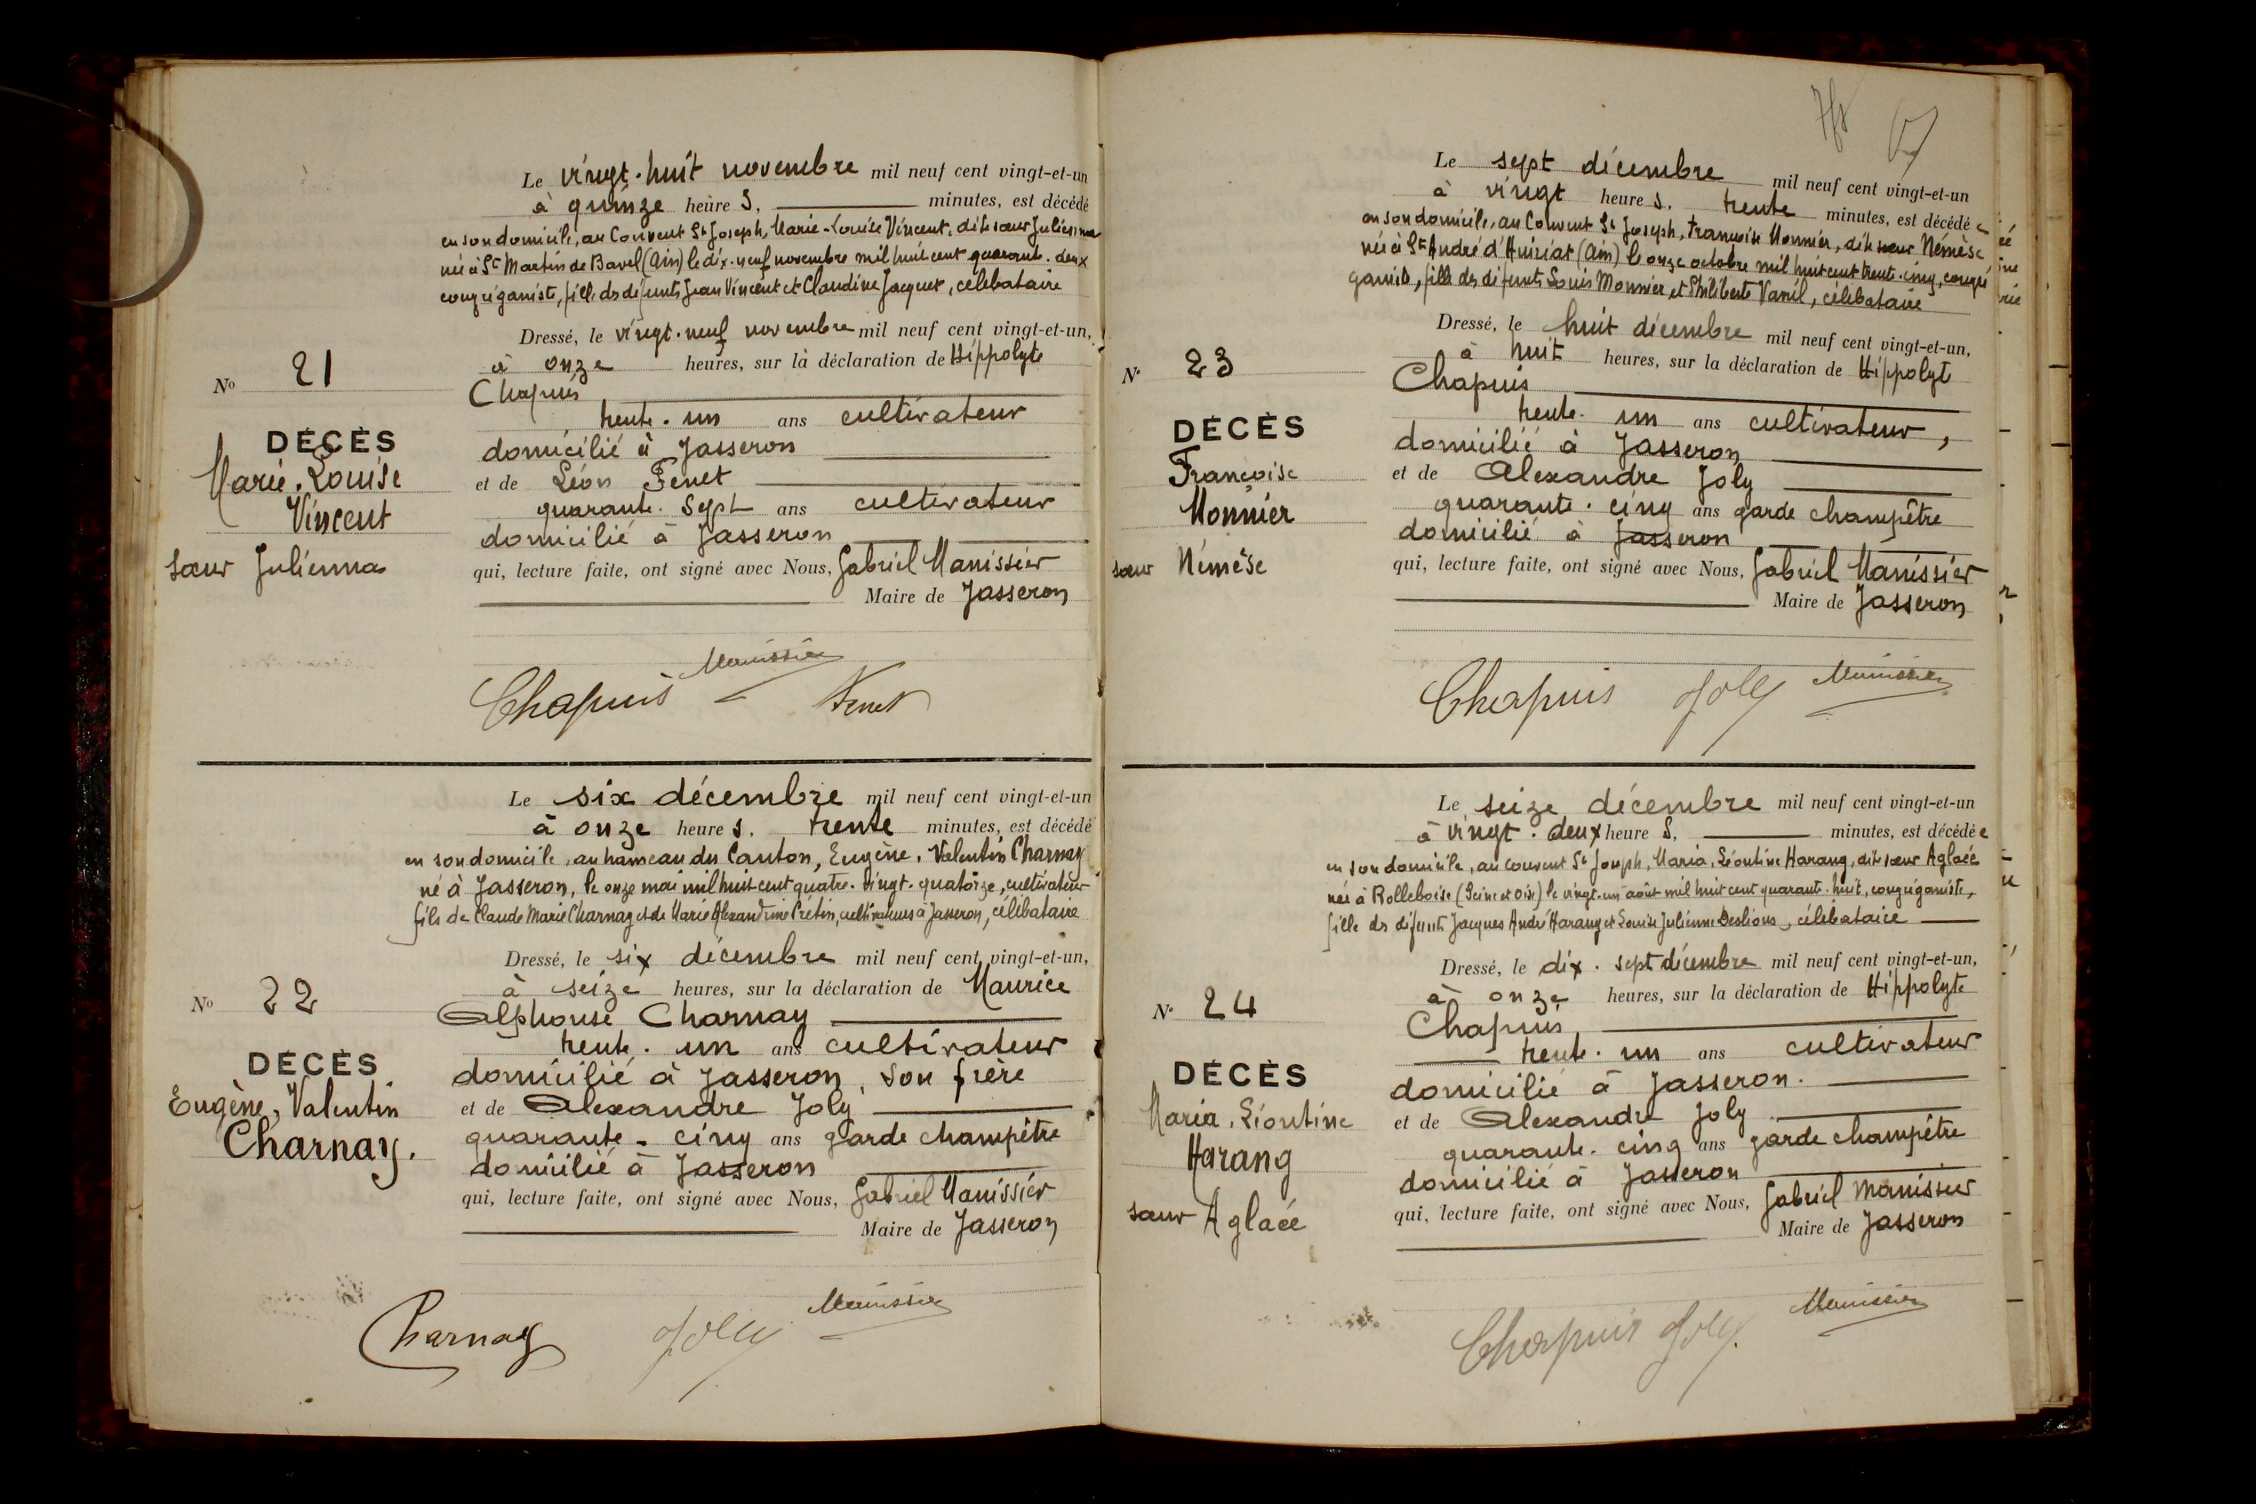 Le vingt-huit novembre mil neuf cent vingt-et-un
à quinze heures, minutes, est décédé
en son domicile, au Couvent St Joseph, Marie-Louise Vincent, dite sœur Julienna
née à St Martin de Bavel (Ain) le dix-neuf novembre mil huit cent quarante-deux
congréganiste, fille des défunts Jean Vincent et Claudine Jacquet, célibataire
Dressé, le vingt-neuf novembre mil neuf cent vingt-et-un,
à onze heures, sur la déclaration de Hippolyte
Chapuis
trente-un ans cultivateur
domicilié à Jasseron
et de Léon Fenet
quarante-sept ans cultivateur
domicilié à Jasseron
qui, lecture faite, ont signé avec Nous, Gabriel Manissier
Maire de Jasseron
No 21
DÉCÈS
Marie-Louise
Vincent
sœur Julienna
Manissier
Chapuis Fenet
Le six décembre mil neuf cent vingt-et-un
à onze heures, trente minutes, est décédé
en son domicile, au hameau du Canton, Eugène, Valentin Charnay
né à Jasseron, le onze mai mil huit cent quatre-vingt-quatorze, cultivateur
fils de Claude Marie Charnay et de Marie Alexandrine Crétin, cultivateurs à Jasseron, célibataire
Dressé, le six décembre mil neuf cent vingt-et-un,
à seize heures, sur la déclaration de Maurice
Alphonse Charnay
trente-un ans cultivateur
domicilié à Jasseron, son frère
et de Alexandre Joly
quarante-cinq ans garde champêtre
domicilié à Jasseron
qui, lecture faite, ont signé avec Nous, Gabriel Manissier
Maire de Jasseron
No 22
DÉCÈS
Eugène, Valentin
Charnay.
Charnay Joly Manissier
Le sept décembre mil neuf cent vingt-et-un
à vingt heures, trente minutes, est décédée
en son domicile, au Couvent St Joseph, Françoise Monnier, dite sœur Némèse
née à St André d'Huiriat (Ain) le onze octobre mil huit cent trente-cinq, congré
ganiste, fille des défunts Louis Monnier et Philiberte Vanil, célibataire
Dressé, le huit décembre mil neuf cent vingt-et-un,
à huit heures, sur la déclaration de Hippolyte
Chapuis
trente-un ans cultivateur,
domicilié à Jasseron
et de Alexandre Joly
quarante-cinq ans garde champêtre
domicilié à Jasseron
qui, lecture faite, ont signé avec Nous, Gabriel Manissier
Maire de Jasseron
N° 23
DÉCÈS
Françoise
Monnier
sœur Némèse
Chapuis Joly Manissier
Le seize décembre mil neuf cent vingt-et-un
à vingt-deux heures, minutes, est décédée
en son domicile, au couvent St Joseph, Maria, Léontine Harang, dite sœur Aglaée
née à Rolleboise (Seine et Oise) le vingt-un août mil huit cent quarante-huit, congréganiste,
fille des défunts Jacques André Harang et Louise Julienne Deslions, célibataire
Dressé, le dix-sept décembre mil neuf cent vingt-et-un,
à onze heures, sur la déclaration de Hippolyte
Chapuis,
trente-un ans cultivateur
domicilié à Jasseron.
et de Alexandre Joly
quarante-cinq ans garde champêtre
domicilié à Jasseron
qui, lecture faite, ont signé avec Nous, Gabriel Manissier
Maire de Jasseron
N° 24
DÉCÈS
Maria, Léontine
Harang
sœur Aglaée
Chapuis Joly Manissier